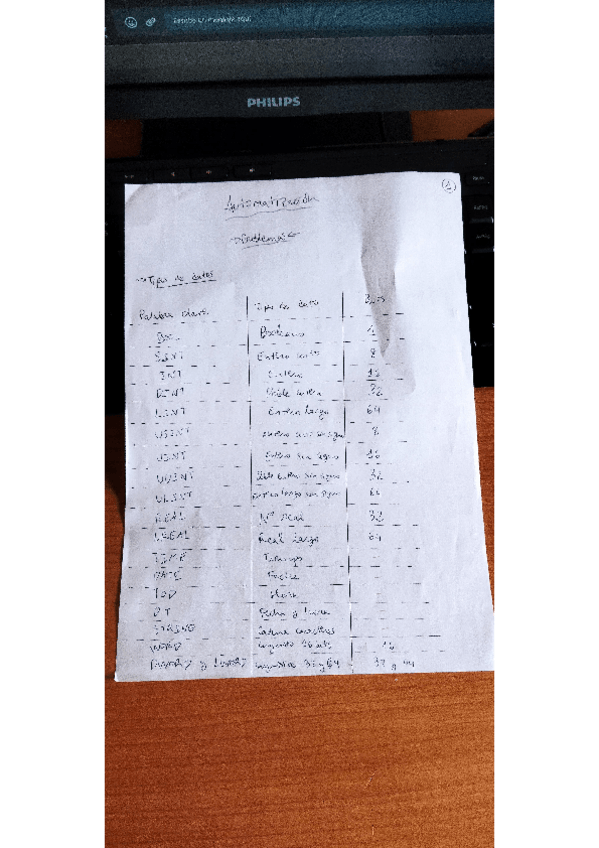 Escribe un mensaje aquí
PHILIPS
1
Automatización
Problemas
Tipos de datos
Palabra clave Tipo de dato Bits
Booleano 1
SINT Entero corto 8
INT Entero 16
DINT Doble entero 32
LINT Entero largo 64
USINT Entero corto sin signo 8
UINT Entero sin signo 16
UDINT Doble entero sin signo 32
ULINT Entero largo sin signo 64
REAL Nº real 32
LREAL Real largo 64
TIME Tiempo
DATE Fecha
TOD Hora
DT Fecha y hora
STRING Cadena caracteres
WORD 16 bits 16
y 32 y 64 32 y 64